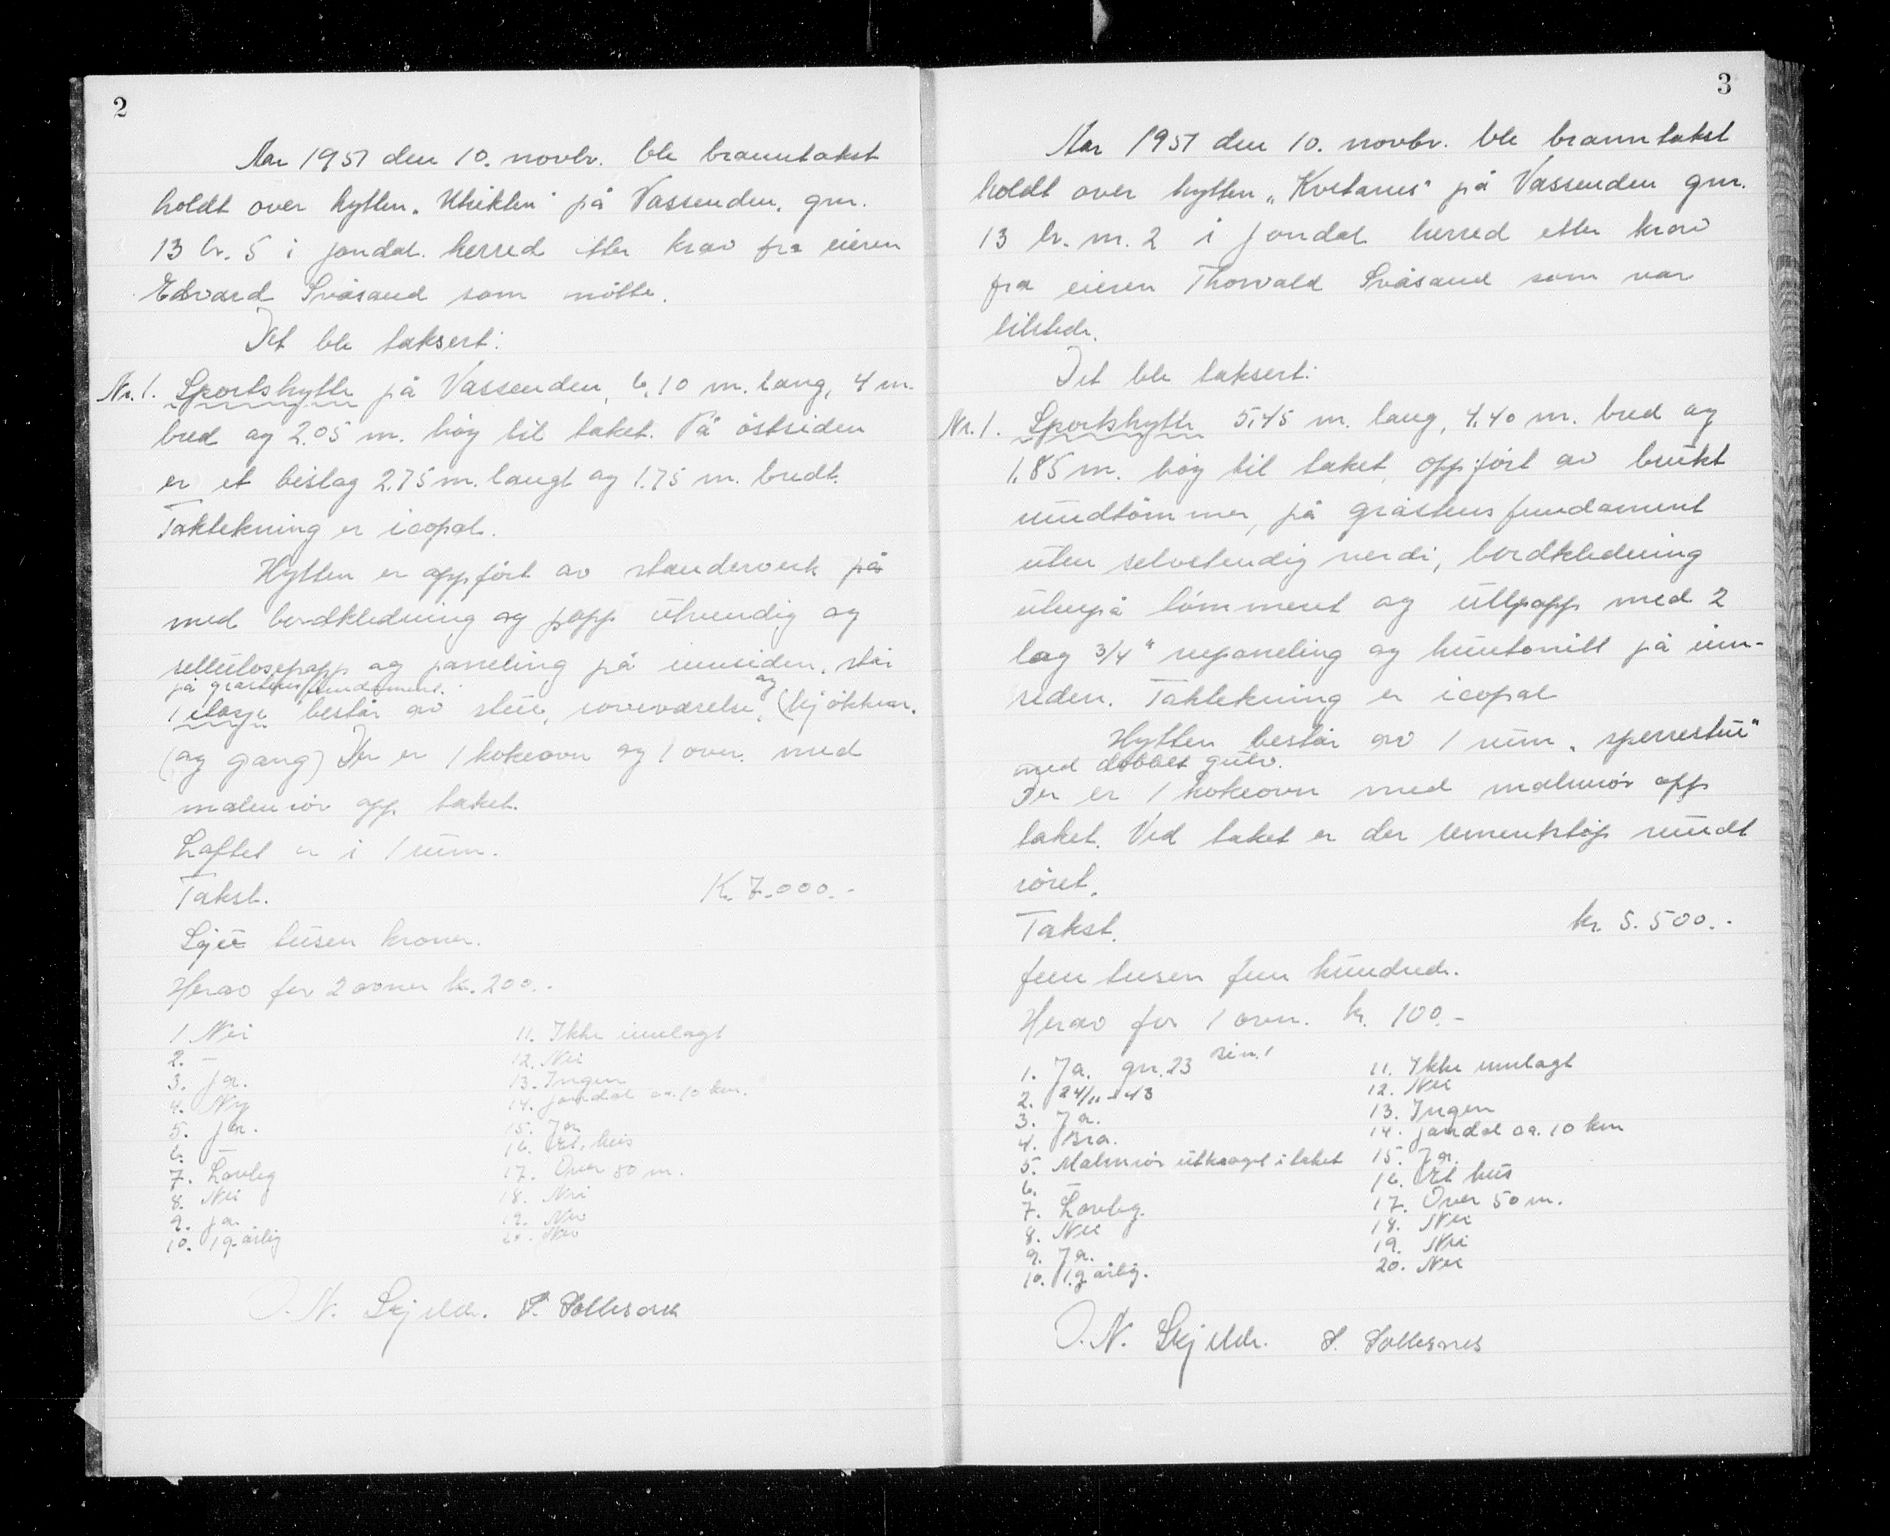 2
Aar 1951 den 10. novbr. ble branntakst
holdt over hytten „Utsikten" på Vassenden, gnr.
13 br. 5 i Jondal herred etter krav fra eieren
Edvard Svåsand som møtte.
Det ble taksert:
Nr. 1. Sportshytte på Vassenden, 6,10 m. lang, 4 m.
bred og 2.05 m. høy til taket. På østsiden
er et bislag 2.75 m. langt og 1.75 m. bredt.
Taktekning er icopal.
Hytten er oppført av standerverk på
med bordkledning og papp utvendig og
sellulosepapp og paneling på innsiden, står
på gråstens fundament.
1 etasje består av stue, soveværelse, og (kjøkken.
(og gang) Der er 1 kokeovn og 1 ovn. med
malmrør opp taket.
Loftet er i 1 rum.
Takst. K. 7.000.-
Sju tusen kroner.
Herav for 2 ovner kr. 200.-
1 Nei
2. –
3. Ja.
4. Ny
5. Ja.
6. –
7. Lovleg
8. Nei
9. Ja
10. 1 g. årlig
11. Ikke innlagt
12. Nei
13. Ingen
14. Jondal ca. 10 km.
15. Ja
16. Et hus
17. Over 50 m.
18. Nei
19. Nei
20. Nei
O. N. Skjelde. S. Sollesnes
3
Aar 1951 den 10. novbr. ble branntakst
holdt over hytten „Kvitanes" på Vassenden gnr.
13 br. nr. 2 i Jondal herred etter krav
fra eieren Thorvald Svåsand som var
tilstede.
Det ble taksert:
Nr. 1. Sportshytte 5,45 m. lang, 4,40 m. bred og
1,85 m. høy til taket, oppført av brukt
rundtømmer, på gråstens fundament
uten selvstendig verdi, bordkledning
utenpå tømmeret og ullpapp med 2
lag 3/4" repaneling og huntonitt på inn-
siden. Taktekning er icopal
Hytten består av 1 rum „sperrestue"
med dobbet gulv.
Der er 1 kokeovn med malmrør opp
taket. Ved taket er der sementstøp rundt
røret.
Takst. kr. 5.500.-
fem tusen fem hundrede.
Herav for 1 ovn. kr. 100.-
1. Ja. gnr. 23
2. 24/11 - 43
3. Ja.
4. Bra.
5. Malmrør utkraget i taket
6. –
7. Lovleg.
8. Nei
9. Ja.
10. 1 g. årlig.
11. Ikke innlagt
12. Nei
13. Ingen
14. Jondal ca. 10 km
15. Ja.
16. Et hus
17. Over 50 m.
18. Nei
19. Nei
20. Nei
O. N. Skjelde. S. Sollesnes